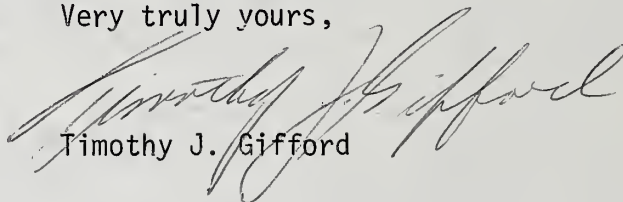 Very truly yours,
Timothy J. Gifford
Timothy J. Gifford